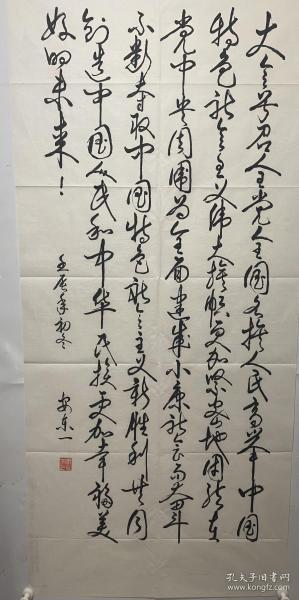 大会号召全党全国各族人民高举中国
特色社会主义伟大旗帜更加紧密地团结在
党中央周围为全面建成小康社会而奋斗
不断夺取中国特色社会主义新胜利共同
创造中国人民和中华民族更加幸福美
好的未来！
壬辰年初冬
安东一
孔夫子旧书网
www.kongfz.com